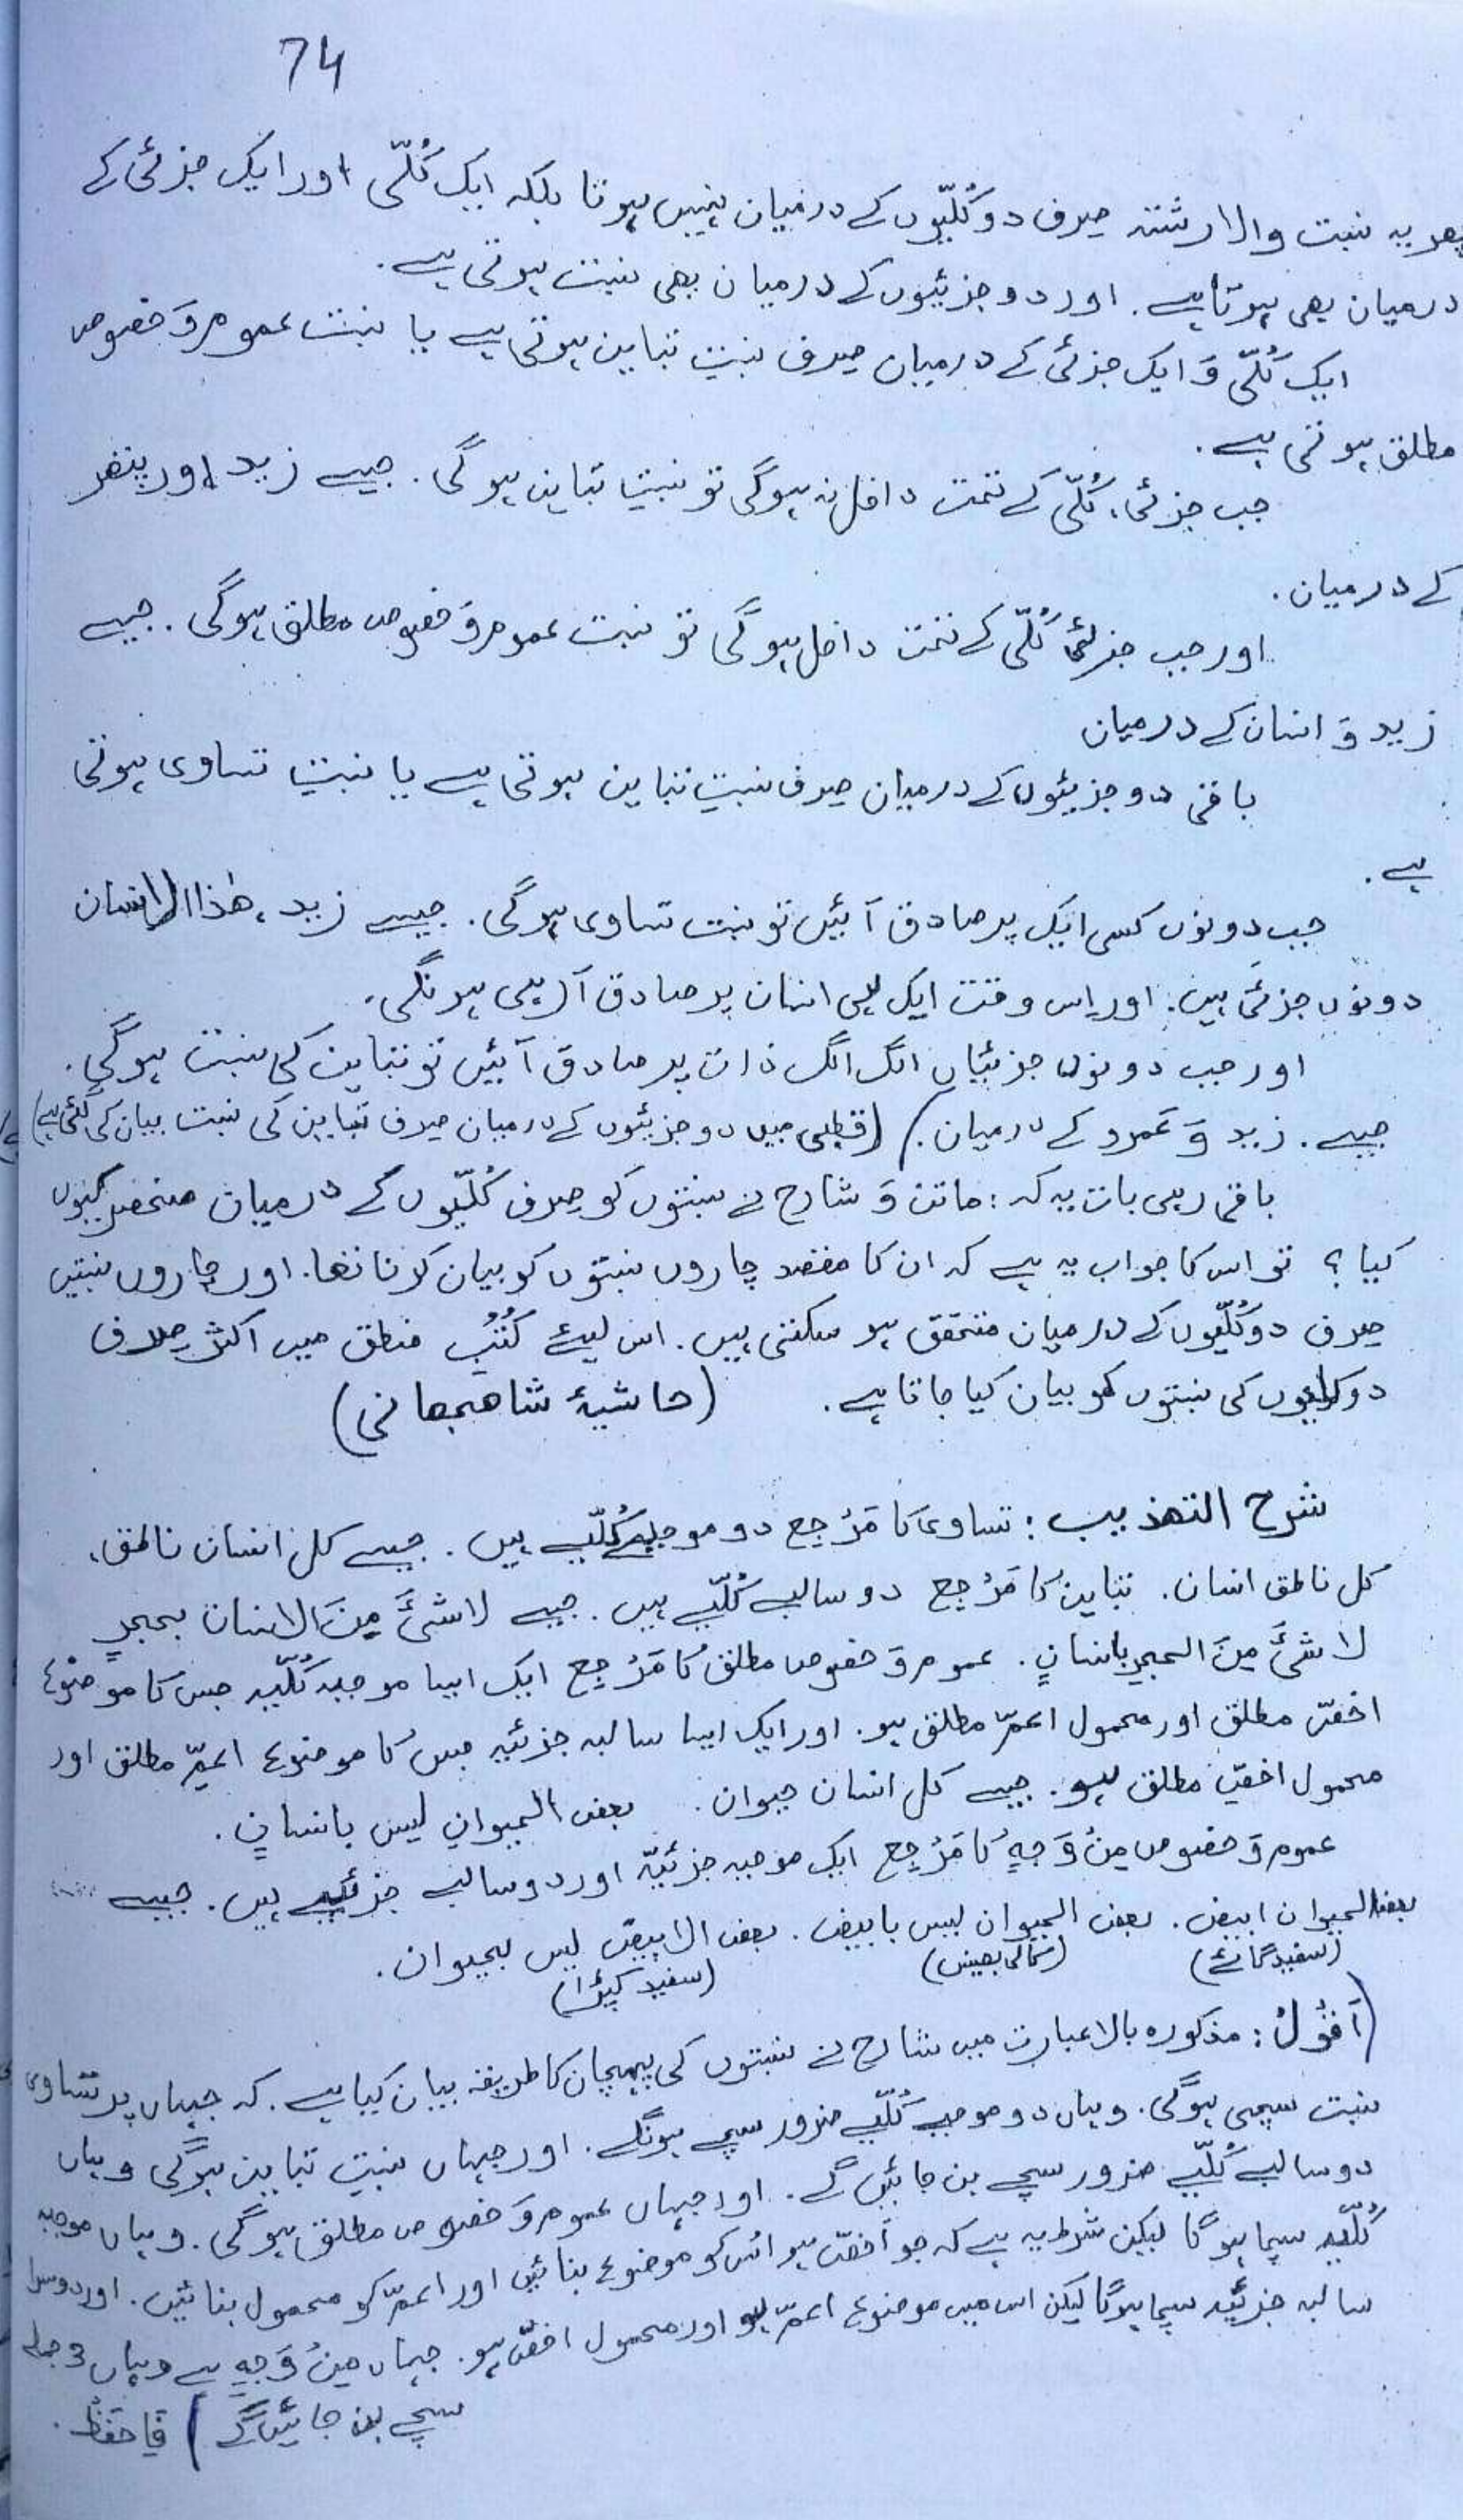 74
پھر یہ نسبت والا رشتہ صرف دو کُلّیّوں کے درمیان نہیں ہوتا بلکہ ایک کُلّی اور ایک جزئی کے
درمیان بھی ہوتا ہے. اور دو جزئیوں کے درمیان بھی نسبت ہوتی ہے.
ایک کُلّی وَ ایک جزئی کے درمیان صرف نسبتِ تباین ہوتی ہے یا نسبت عموم وَ خصوص
مطلق ہوتی ہے.
جب جزئی، کُلّی کے تحت داخل نہ ہوگی تو نسبتِ تباین ہوگی. جیسے زید اور پتھر
کے درمیان.
اور جب جزئی کُلّی کے تحت داخل ہوگی تو نسبت عموم وَ خصوص مطلق ہوگی. جیسے
زید وَ انسان کے درمیان
باقی دو جزئیوں کے درمیان صرف نسبتِ تباین ہوتی ہے یا نسبتِ تساوی ہوتی
ہے.
جب دونوں کسی ایک پر صادق آئیں تو نسبت تساوی ہوگی. جیسے زید، ھٰذا الانسان
دونوں جزئی ہیں. اور اس وقت ایک ہی انسان پر صادق آ رہی ہونگی.
اور جب دونوں جزئیاں الگ الگ ذات پر صادق آئیں تو تباین کی نسبت ہوگی.
جیسے. زید وَ عَمرو کے درمیان.) (قطبی میں دو جزئیوں کے درمیان صرف تباین کی نسبت بیان کی گئی ہے)
باقی رہی بات یہ کہ: ماتن وَ شارح نے نسبتوں کو صرف کُلّیّوں کے درمیان منحصر کیوں
کیا؟ تو اس کا جواب یہ ہے کہ ان کا مقصد چاروں نسبتوں کو بیان کرنا تھا. اور چاروں نسبتیں
صرف دو کُلّیّوں کے درمیان متحقق ہو سکتی ہیں. اس لیئے کُتُبِ منطق میں اکثر صرف
دو کلیوں کی نسبتوں کو بیان کیا جاتا ہے. (حاشیۂ شاھجھانی)
شرح التھذیب: تساوی کا مَرْجِع دو موجبے کُلّیے ہیں. جیسے کل انسان ناطق،
کل ناطق انسان. تباین کا مَرْجِع دو سالبے کُلّیے ہیں. جیسے لا شئَ مِنَ الانسان بحجرٍ
لا شئَ مِنَ الحجرِ بانسانٍ. عموم وَ خصوص مطلق کا مَرْجِع ایک ایسا موجبہ کُلّیہ جس کا موضوع
اخصّ مطلق اور محمول اعمّ مطلق ہو. اور ایک ایسا سالبہ جزئیہ جس کا موضوع اعمّ مطلق اور
محمول اخصّ مطلق ہو. جیسے کل انسان حیوان. بعض الحیوانِ لیس بانسانٍ.
عموم وَ خصوص مِنْ وَجہٍ کا مَرْجِع ایک موجبہ جزئیّہ اور دو سالبے جزئیے ہیں. جیسے
بعض الحیوان ابیض. بعض الحیوان لیس بابیض. بعض الابیض لیس بحیوان.
(سفید گائے) (کالی بھینس) (سفید کپڑا)
(اَقُولُ: مذکورہ بالا عبارت میں شارح نے نسبتوں کی پہچان کا طریقہ بیان کیا ہے. کہ جہاں پر تساوی
نسبت سچی ہوگی. وہاں دو موجبے کُلّیے ضرور سچے ہونگے. اور جہاں نسبتِ تباین ہوگی وہاں
دو سالبے کُلّیے ضرور سچے بن جائیں گے. اور جہاں عموم وَ خصوص مطلق ہوگی. وہاں موجبہ
کُلّیہ سچا ہوگا لیکن شرط یہ ہے کہ جو اَخصّ ہو اُس کو موضوع بنائیں اور اعمّ کو محمول بنائیں. اور دوسرا
سالبہ جزئیہ سچا ہوگا لیکن اس میں موضوع اعمّ ہو اور محمول اخصّ ہو. جہاں مِنْ وَجہٍ ہے وہاں
سچے بن جائیں گے) فَاحفَظْ.